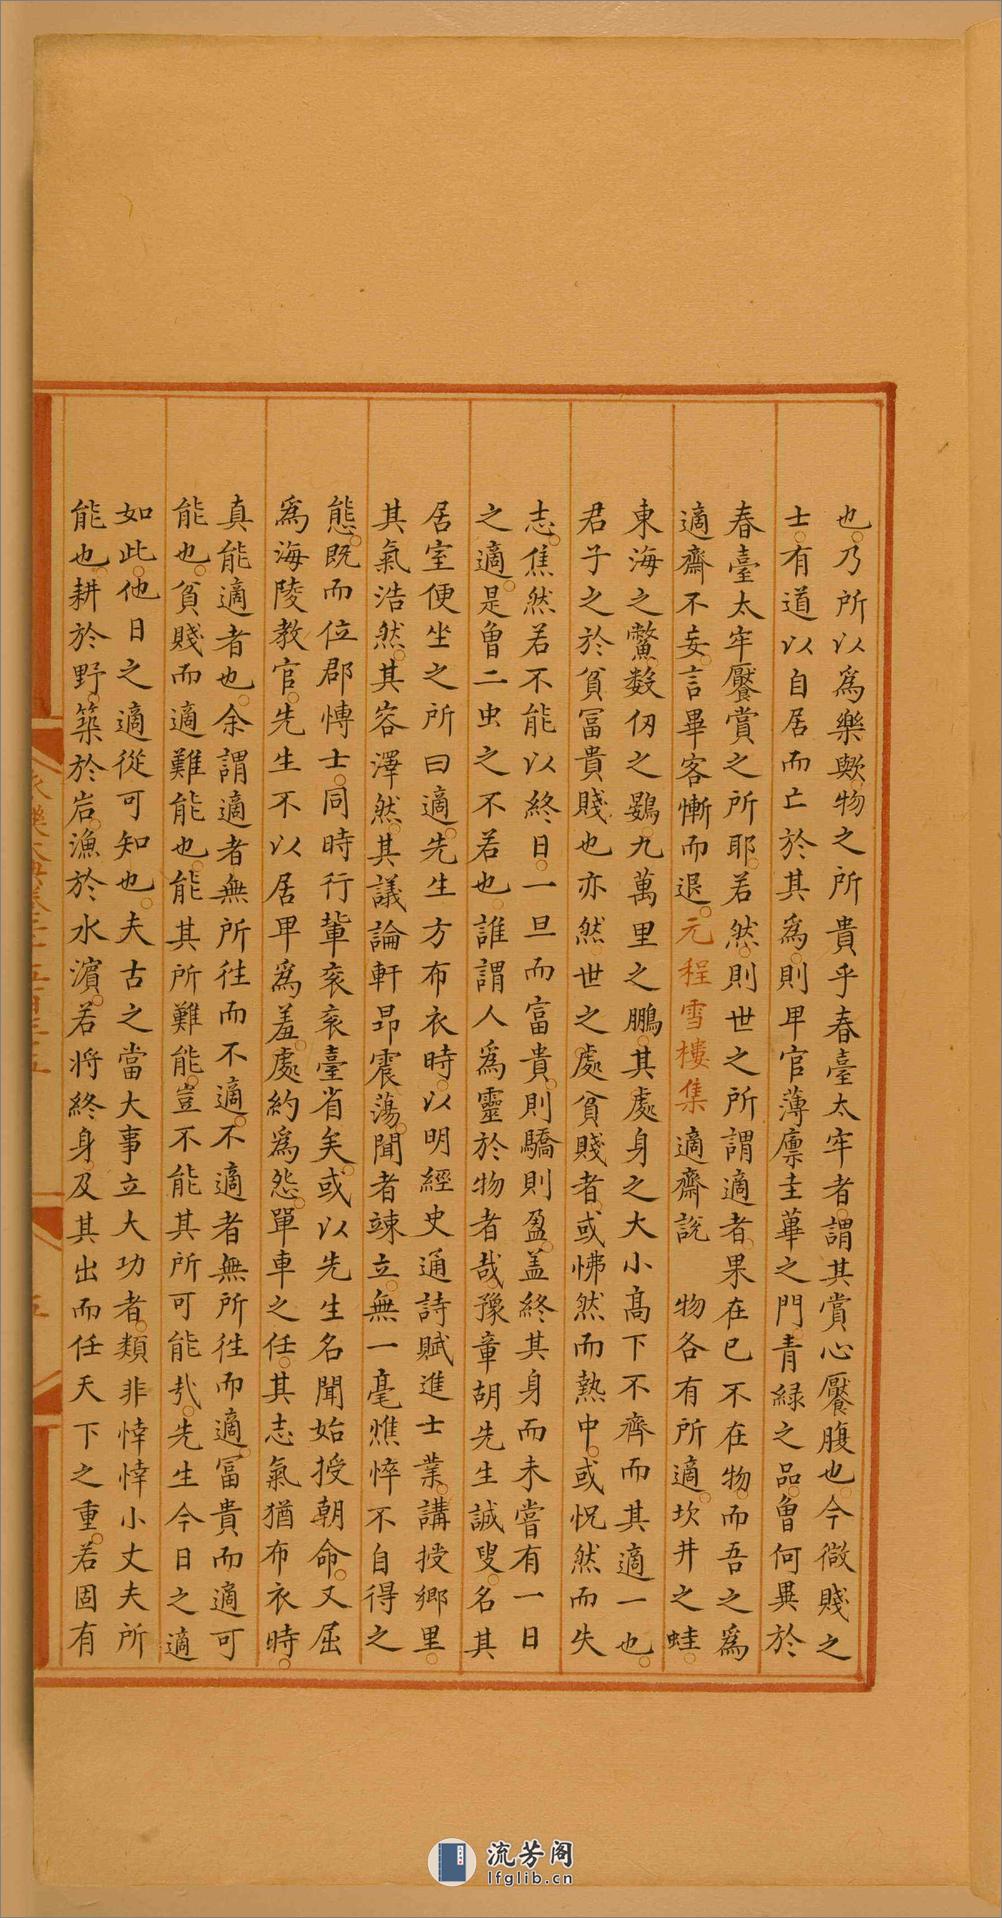 也乃所以爲樂歟物之所貴乎春臺太牢者謂其賞心饜腹也今微賤之
士有道以自居而亡於其爲則早官薄廪圭蓽之門青緑之品魯何異於
春臺太牢饜賞之所耶若然則世之所謂適者果在已不在物而吾之爲
適齋不妄言畢客慚而退元程雪樓集適齋説 物各有所適坎井之蛙
東海之鱉數仭之鷃九萬里之鵬其處身之大小髙下不齊而其適一也
君子之於貧冨貴賤也亦然世之處貧賤者或怫然而熱中或怳然而失
志焦然若不能以終日一旦而富貴則驕則盈盖終其身而未嘗有一日
之適是魯二虫之不若也誰謂人爲靈於物者哉豫章胡先生誠叟名其
居室便坐之所曰適先生方布衣時以明經史通詩賦進士業講授鄉里
其氣浩然其容澤然其議論軒昻震蕩聞者竦立無一毫憔悴不自得之
態既而位郡愽士同時行軰衮衮臺省矣或以先生名聞始授朝命又屈
爲海陵教官先生不以居早爲羞處約爲怨單車之任其志氣猶布衣時
真能適者也余謂適者無所徃而不適不適者無所徃而適冨貴而適可
能也貧賤而適難能也能其所難能豈不能其所可能㢤先生今日之適
如此他日之適從可知也夫古之當大事立大功者類非悻悻小丈夫所
能也耕於野築於岩漁於水濵若将終身及其出而任天下之重若固有
流芳阁
lfglib.cn